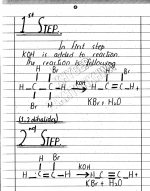 1st STEP.
In first step
KOH is added to reaction
the reaction is following
H Br
H Br
H-C-C-H KOH → H-C=C-H+
H Br
KBr + H2O
(1,2 dihalides)
2nd STEP.
H Br
H-C=C-H KOH → H-C≡C-H+
KBr + H2O